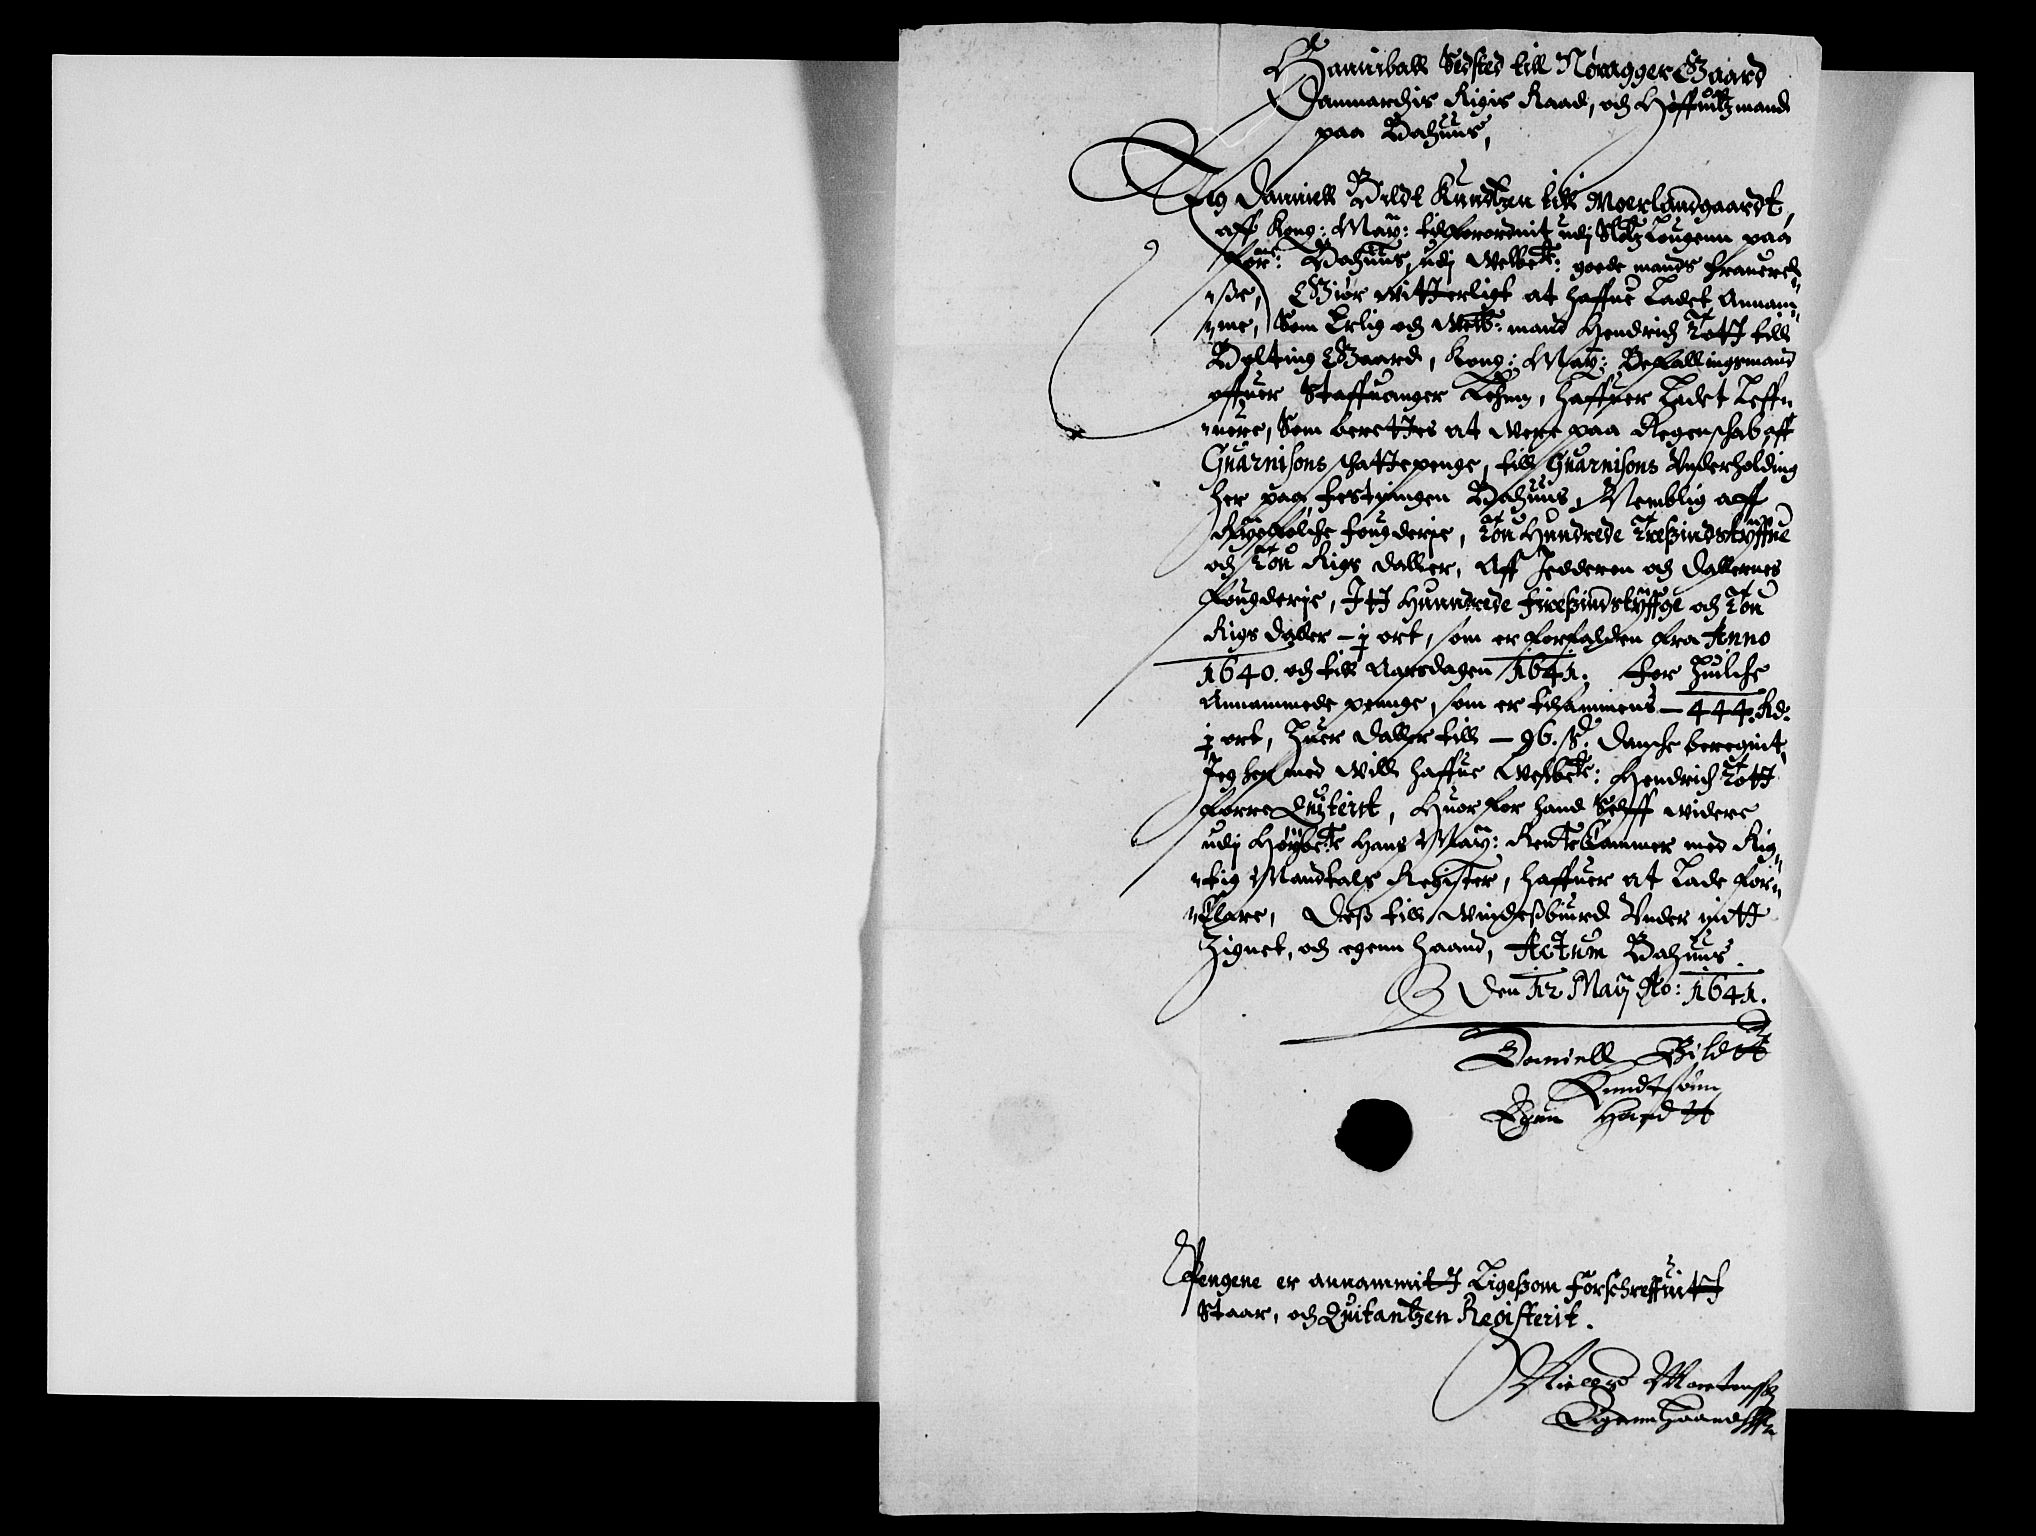 Hanniball Sedsted till Nøragger Gaard
Danmarchis Rigis Raad, och Høffuitzmand
paa Bahuus,
Jeg Danniell Bildt Knudtzen till Moerlandgaardt,
aff Kong: May: tilforordnit udj Slotz Lougenn paa
forne: Bahuus, udj Welbete: goede mands frauerel-
"ße, Giør witterligt at haffue Ladet Annam-
"me, Som Erlig och Welb: mand Hendrich Tott till
Bolting Gaard, Kong: May: Befallingsmand
offuer Staffuanger Lehnn, haffuer Ladet Leff-
"uere, Som berettes at were paa Regenschab aff
Guarnisons schattepenge, till Guarnisons Vnderholding
her paa festningen Bahuus, Nemblig aff
Ryefølche fougderje, Tou Hundrede Treßindstyffue
och Tou Rigs daller, Aff Jedderen och Dallernes
fougderje, Itt Hunndrede fireßindstyffge och Tou
Rigs daller – j ort, som er forfalden fra Anno
1640. och till Aarsdagen 1641. for huilche
Annammede pennge, som er tilsammens – 444. Rd.
j ort, huer daller till – 96. ß. Dansche beregnit,
Jeg her med will haffue Welbete: Hendrich Tott
forre Quiterit, Huor for hand Selff widere
udj Høybete Hans May: RenteCammer med Rig-
"tig Mandtals Register, haffuer at Lade for-
"Clare, Deß till Windeßbiurd Vnder mitt
Zignet, och egenn haand, Actum Bahuus.
Den 12 May Ao: 1641.
Daniell Bildt
Knudtsønn
Egen Hand
Pengene er annammitt Ligesom forschreffuitt
Staar, och Quitantzen Registerit.
Niels Mortenss
Egenn Haand